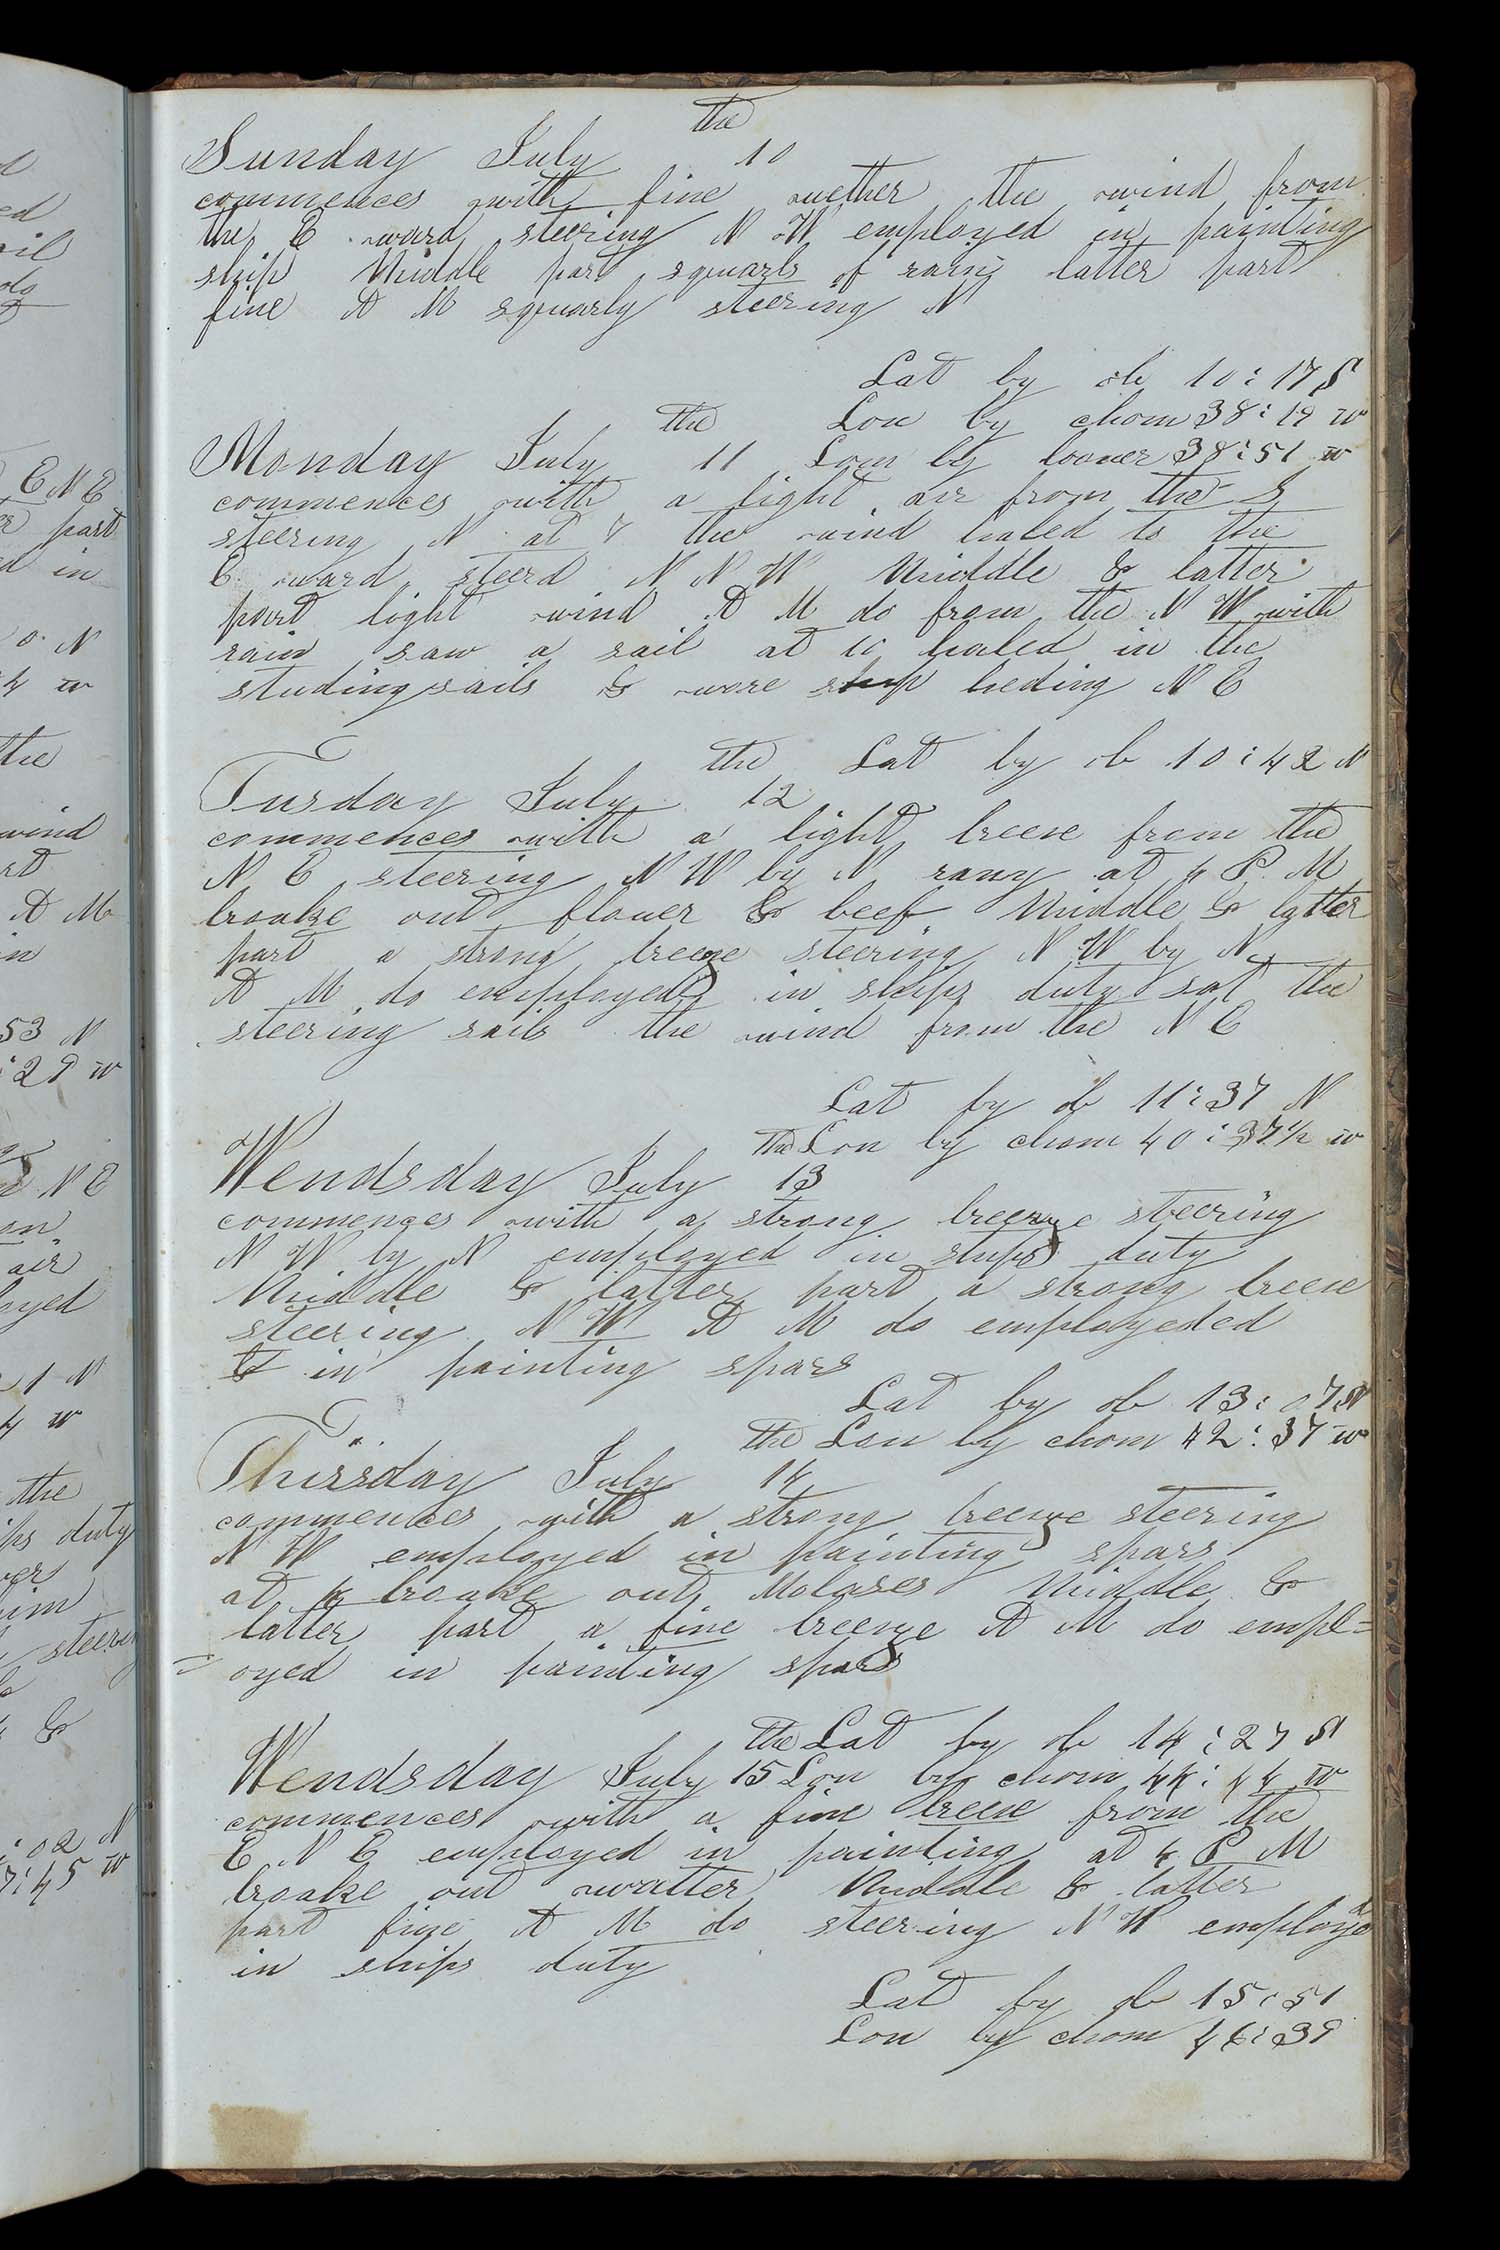 the
Sunday July 10
commences with fine wether the wind from
the E ward steering N W employed in painting
ship Middle part squarls of rain latter part
fine A M squarly steering N
Lat by ob 10:17 S
Lon by chom 38:19 w
the
Monday July 11 Lom by looner 38:51 w
commences with a light air from the S
steering N at 7 the wind haled to the
E ward steerd N N W Middle & latter
part light wind A M do from the N W with
rain saw a sail at 10 haled in the
studing sails & wore ship heding N E
the Lat by ob 10:42 N
Tusday July 12
commences with a light breese from the
N E steering N W by N rany at 4 P. M
broake out flouer & beef Middle & latter
part a strong breeze steering N W by N
A M do employed in ships duty sat the
steering sails the wind from the N E
Lat by ob 11:37 N
the Lon by chom 40:37½ w
Wendsday July 13
commences with a strong breeze steering
N W by N employed in ships duty
Middle & latter part a strong breese
steering N W A M do employeded
& in painting spars
Lat by ob 13:07 N
the Lon by chom 42:37 w
Thirsday July 14
commences with a strong breeze steering
N W employed in painting spars
at 4 broake out Molases Middle &
latter part a fine breeze A M do empl=
= oyed in painting spars
the Lat by ob 14:27 N
Wendsday July 15 Lon by chom 44:44 w
commences with a fine breese from the
E N E employed in painting at 4 P M
broake out watter Middle & latter
part fine A M do steering N W employed
in ships duty
Lat by ob 15:51
Lon by chom 46:39
E N E
part
in
N
w
the
wind
A M
53 N
:29 w
N E
air
oyed
1 N
w
the
ips duty
&
:02 N
7:45 w